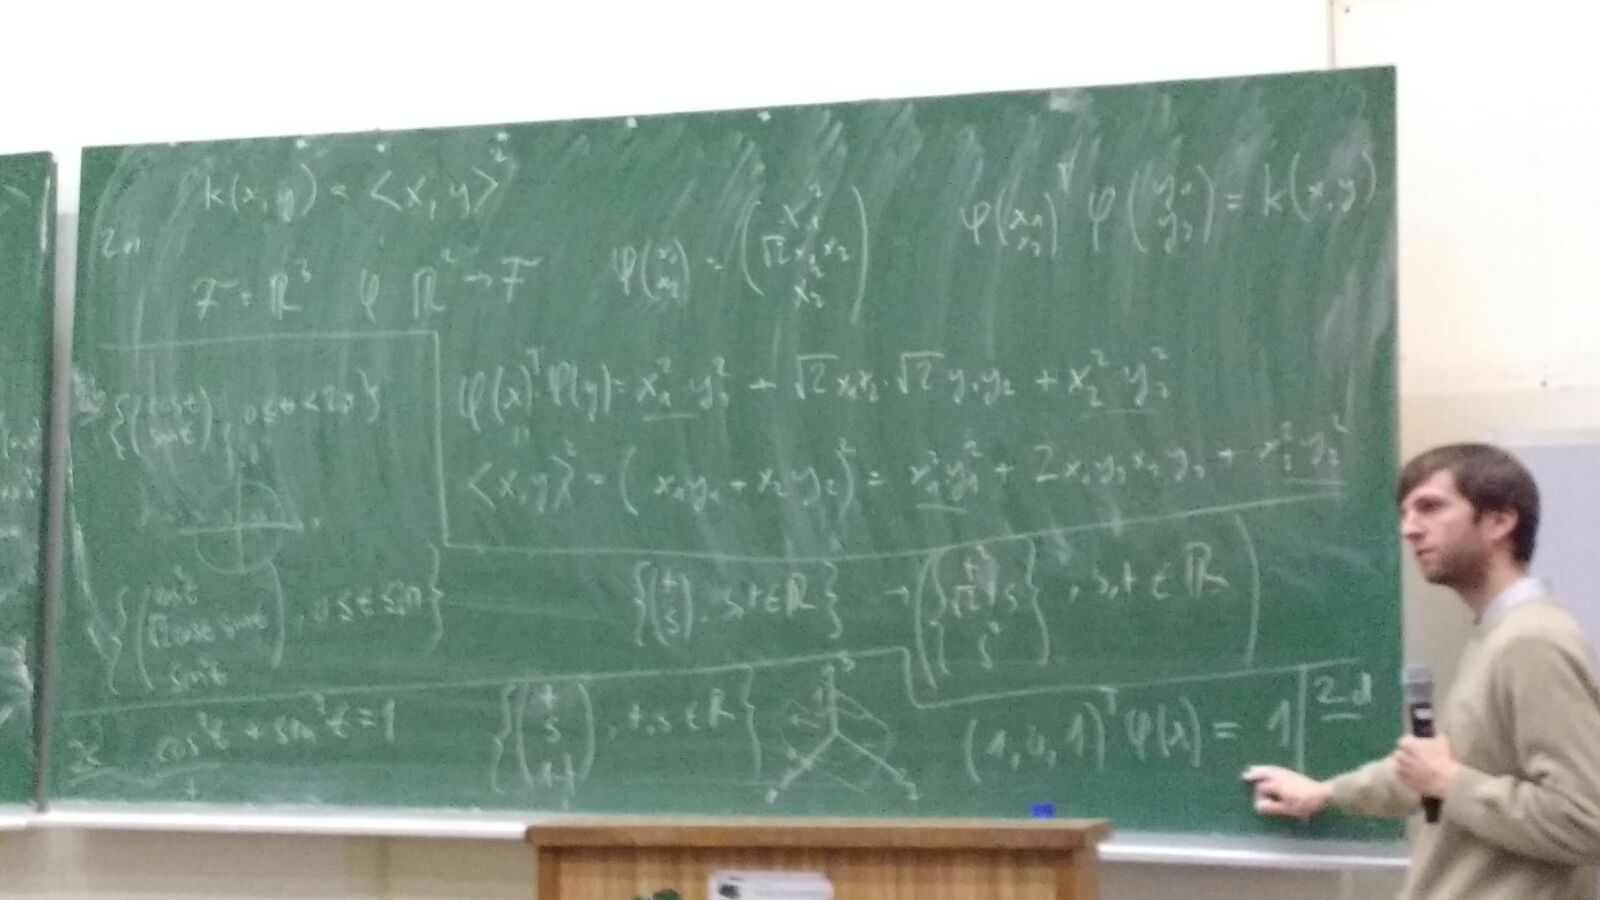 k(x,y) = <x,y>²
F = ℝ³ φ ℝ² → F
φ(x₁ x₂) = (x₁² √2 x₁ x₂ x₂²)
φ(x₁ x₂)ᵀ φ(y₁ y₂) = k(x,y)
φ(x)ᵀ φ(y) = x₁² y₁² + √2 x₁x₂ · √2 y₁y₂ + x₂² y₂²
<x,y>² = (x₁y₁ + x₂y₂)² = x₁²y₁² + 2x₁y₁x₂y₂ + x₂²y₂²
{(cos t sin t), 0≤t<2π}
{(cos²t √2 cos t sin t sin²t), 0≤t≤π}
{(t s), s,t∈ℝ} → {(t² √2 t s s²)}, s,t∈ℝ
cos²t + sin²t = 1
{(t s 1-t), t,s∈ℝ}
φ(x) = 1
2d